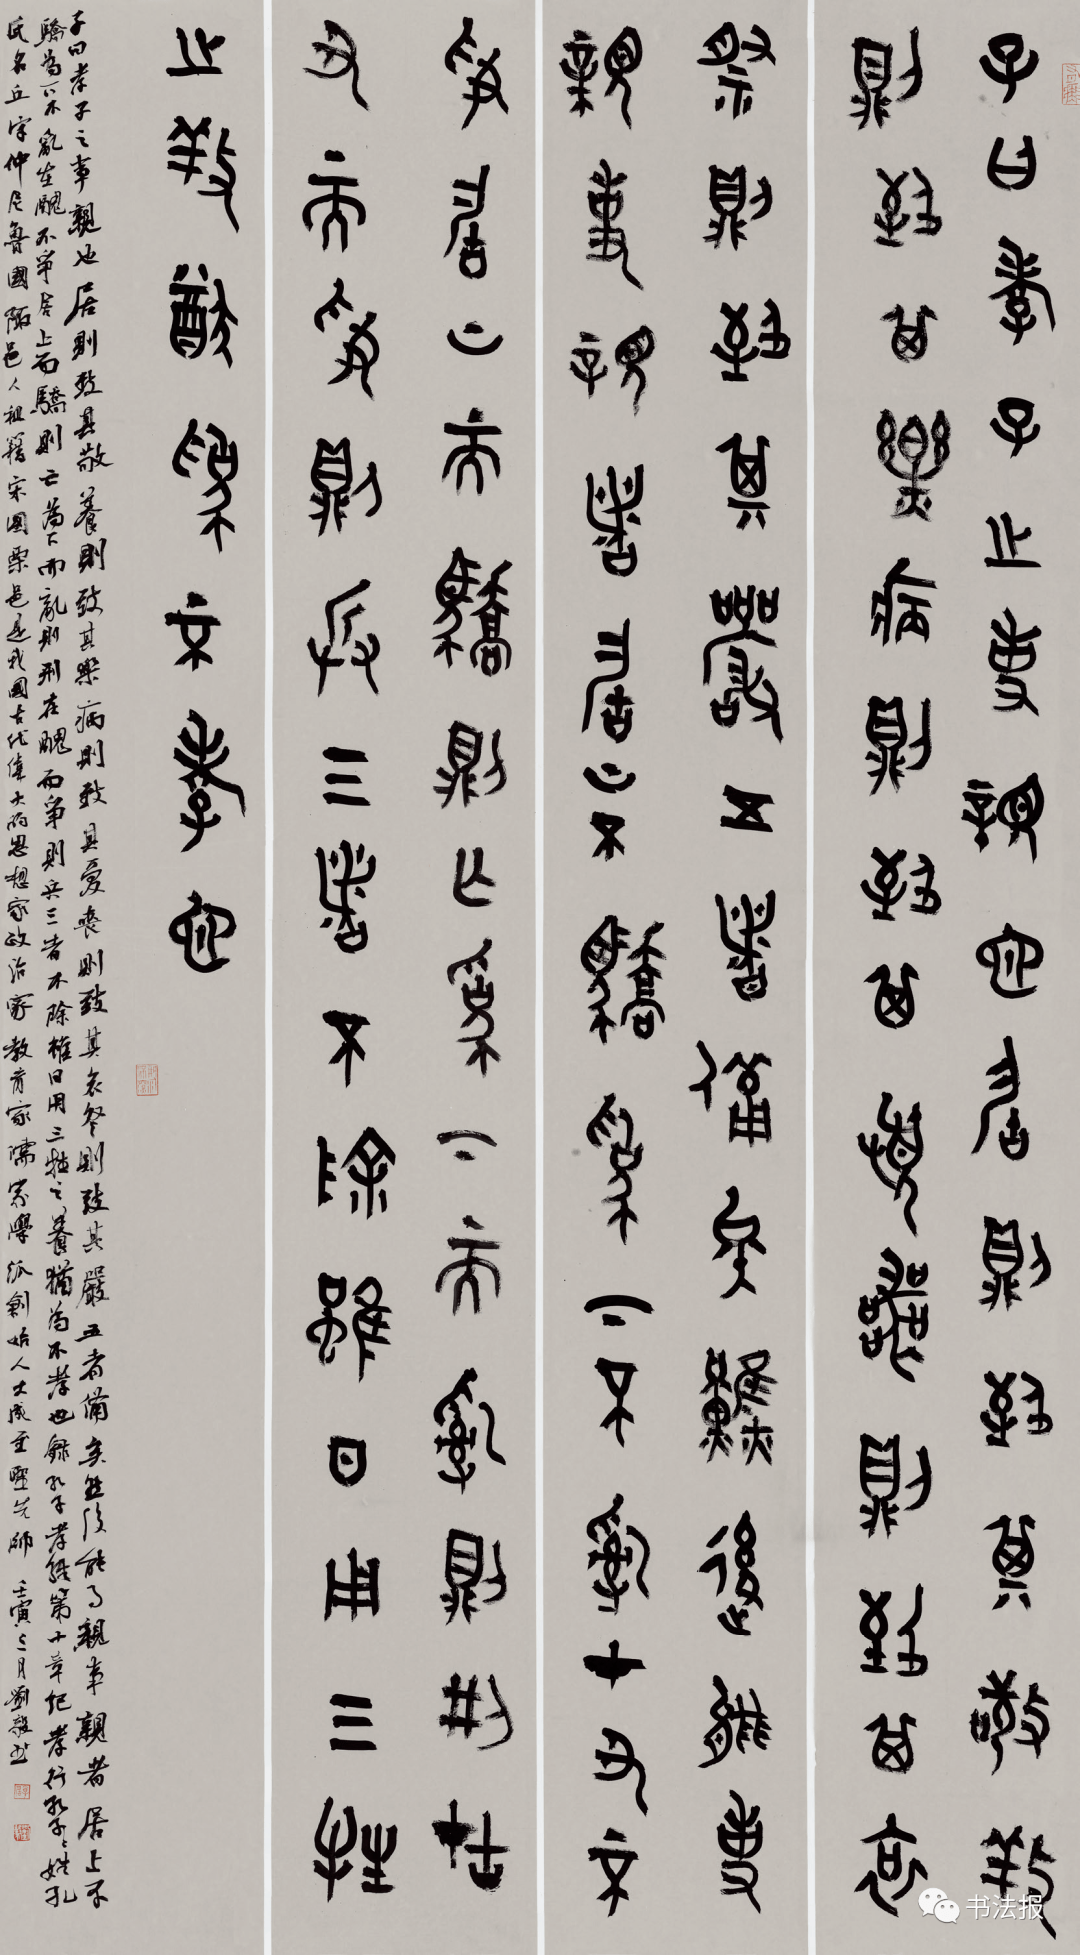 子曰孝子之事親也居則致其敬養
則致其樂病則致其憂喪則致其哀
祭則致其嚴五者備矣然後能事
親事親者居上不驕為下不亂在丑不
爭居上不驕則亡為下不亂則刑在
丑不爭則兵三者不除雖日用三牲
之養猶為不孝也
子曰孝子之事親也居則致其敬養則致其樂病則致其憂喪則致其哀祭則致其嚴五者備矣然後能事親事親者居上不
驕為下不亂在醜不爭居上而驕則亡為下而亂則刑在醜而爭則兵三者不除雖日用三牲之養猶為不孝也錄孔子孝經第十章紀孝行孔子子姓孔
氏名丘字仲尼魯國陬邑人祖籍宋國栗邑是我國古代偉大的思想家政治家教育家儒家學派創始人大成至聖先師 壬寅三月劉
书法报